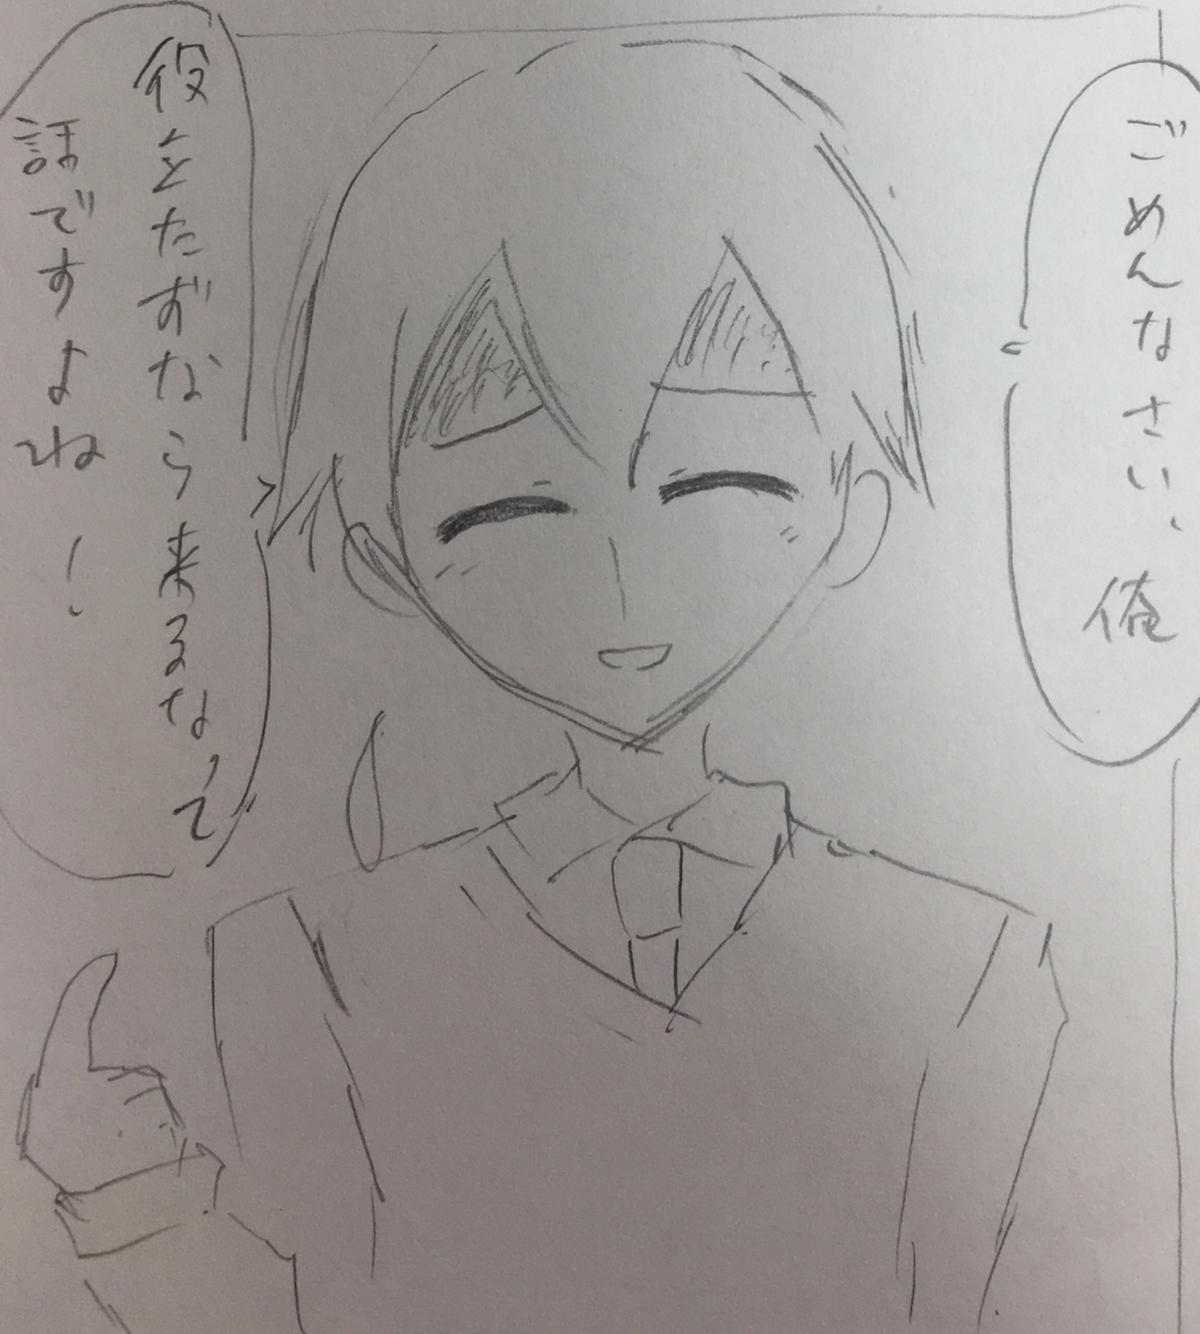 ごめんなさい、俺
役とたずなら来るなって
話ですよね！